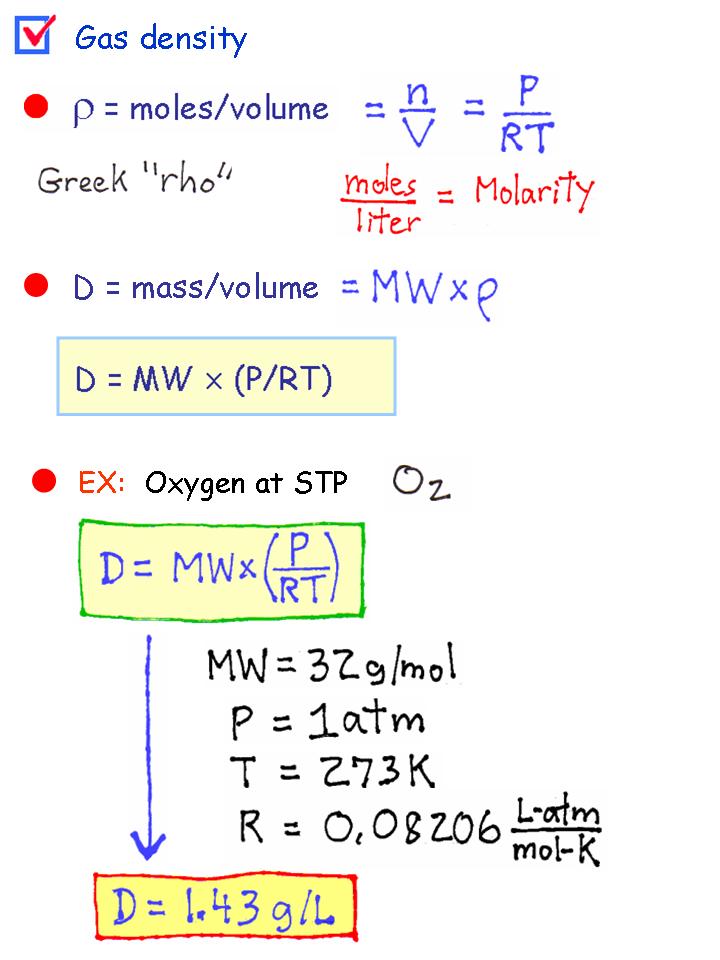 Gas density
ρ = moles/volume = n/V = P/RT
Greek "rho"
moles/liter = Molarity
D = mass/volume = MW × ρ
D = MW × (P/RT)
EX: Oxygen at STP O₂
D = MW × (P/RT)
MW = 32 g/mol
P = 1 atm
T = 273 K
R = 0.08206 L-atm/mol-K
D = 1.43 g/L